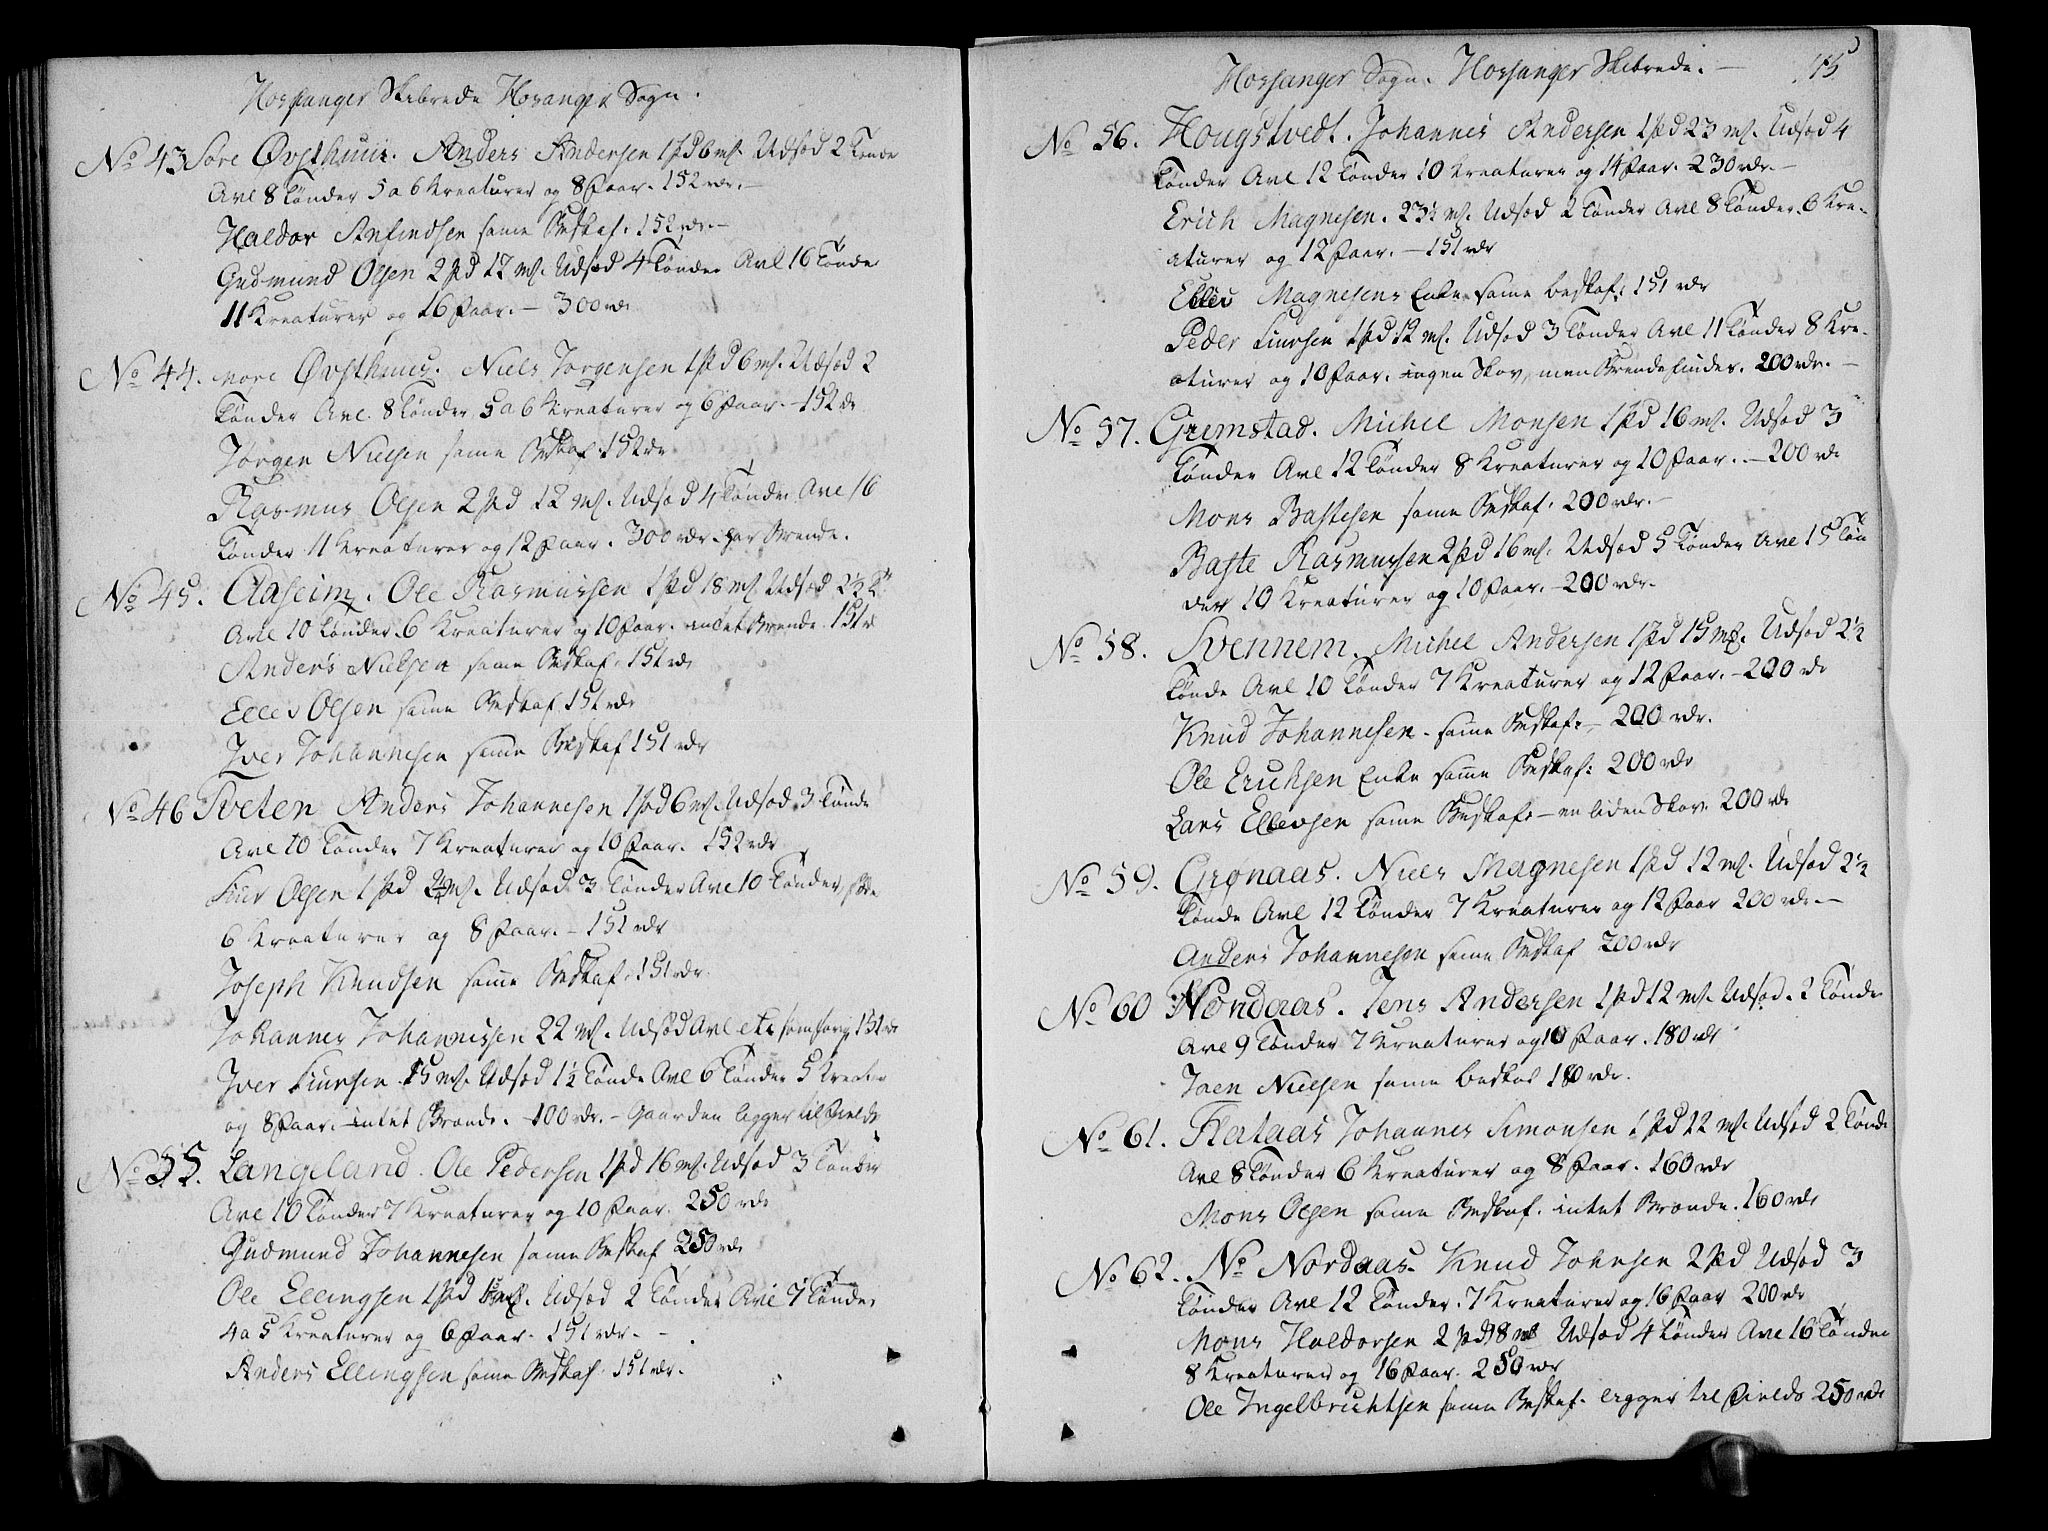 Hossanger Skibrede Hosanger Sogn.
No 43 Søre Øvsthuus. Anders Andersen 1 pd 6 mk. Udsød 2 Tønder
Avl 8 Tønder 5 a 6 Kreaturer og 8 Faar. 152 rdr. —
Haldor Anfindsen same Beskaf. 152 rdr. —
Gudmund Olsen 2 pd 12 mk. Udsød 4 Tønder Avl 16 Tønder
11 Kreaturer og 16 Faar. — 300 rdr
No 44. Nore Øvsthuus. Niels Jørgensen 1 pd 6 mk. Udsød 2
Tønder Avl. 8 Tønder 5 a 6 Kreaturer og 6 Faar. — 152 rdr
Jørgen Nielsen same Beskaf. 152 rdr
Rasmus Olsen 2 pd 12 mk. Udsød 4 Tønder Avl 16
Tønder 11 Kreaturer og 12 Faar. 300 rdr. har Brende.
No 45. Aaseim. Ole Rasmussen 1 pd 18 mk Udsød 2½ Tr
Avl 10 Tønder 6 Kreaturer og 10 Faar. intet Brende. 151 r
Anders Nielsen same Beskaf. 151 rdr
Elles Olsen same Beskaf 151 rdr
Iver Johannesen same Beskaf 151 rdr
No 46 Tveten Anders Johannesen 1 pd 6 mk. Udsød 3 Tønde
Avl 10 Tønder 7 Kreaturer og 10 Faar. 152 rdr
Siur Olsen 1 pd mk. Udsød 3 Tønder Avl 10 Tønder,
6 Kreaturer og 8 Faar. — 151 rdr
Joseph Knudsen same Beskaf. 151 rdr.
Johannes Johannessen 22 mk. Udsød Avl etc som forig 151 rdr
Iver Siursen 15 mk. Udsød 1½ Tønde Avl 6 Tønder 5 Kreatur
og 8 Faar. intet Brende. 100 rdr. — Gaarden ligger til Fields
No 55. Langeland. Ole Pedersen 1 pd 16 mk. Udsød 3 Tønder
Avl 10 Tønder 7 Kreaturer og 10 Faar. 250 rdr
Gudmund Johannesen same Beskaf 250 rdr
Ole Ellingsen 1 pd mk. Udsød 2 Tønder Avl 7 Tønder
4 a 5 Kreaturer og 6 Faar. 151 rdr. —
Anders Ellingsen same Beskaf. 151 rdr.
Hossanger Sogn. Hossanger Skibrede. — 45
No 56. Hougstvedt. Johannes Andersen 1 pd 23 mk. Udsød 4
Tønder Avl 12 Tønder 10 Kreaturer og 14 Faar. 230 rdr. —
Erich Magnesen. 23½ mk. Udsød 2 Tønder Avl 8 Tønder. 6 Kre-
aturer og 12 Faar. — 151 rdr
Ellev Magnesens Enke same beskaf: 151 rdr
Peder Siursen 1 pd 12 mk. Udsød 3 Tønder Avl 11 Tønder 8 Kre-
aturer og 10 Faar. ingen Skov, men Brende findes. 200 rdr. —
No 57. Gremstad. Michel Monsen 1 pd 16 mk. Udsød 3
Tønder Avl 12 Tønder 8 Kreaturer og 10 Faar. — 200 rdr
Mons Bastesen same Beskaf. 200 rdr. —
Baste Rasmussen 2 pd 16 mk. Udsød 5 Tønder Avl 15 Tøn
der 10 Kreaturer og 10 Faar. — 200 rdr.
No 58. Svennem. Michel Andersen 1 pd 15 mk. Udsød 2½
Tønde Avl 10 Tønder 7 Kreaturer og 12 Faar. — 200 rdr
Knud Johannesen. same Beskaf. — 200 rdr.
Ole Erichsen Enke same Beskaf: 200 rdr
Lars Ellevsen same Beskaf. — en liden Skov. 200 rdr
No 59. Grønaas. Niels Magnesen 1 pd 12 mk. Udsød 2½
Tønde Avl 12 Tønder 7 Kreaturer og 12 Faar 200 rdr. —
Anders Johannesen same Beskaf 200 rdr
No 60 Nondaas. Jens Andersen 1 pd 12 mk. Udsød. 2 Tønder
Avl 9 Tønder 7 Kreaturer og 10 Faar. 180 rdr
Joen Nielsen same beskaf 180 rdr.
No 61. Flataas Johannes Simonsen 1 pd 12 mk. Udsød 2 Tønde
Avl 8 Tønder 6 Kreaturer og 8 Faar. 160 rdr
Mons Olsen same Beskaf. intet Brende. 160 rdr
No 62. No Nordaas. Knud Johnsen 2 pd Udsød 3
Tønder Avl 12 Tønder. 7 Kreaturer og 16 Faar 200 rdr
Mons Haldorsen 2 pd 18 mk Udsød 4 Tønder Avl 16 Tønder
8 Kreaturer og 16 Faar. 250 rdr
Ole Ingelbrichtsen same Beskaf. ligger til Fields 250 rdr